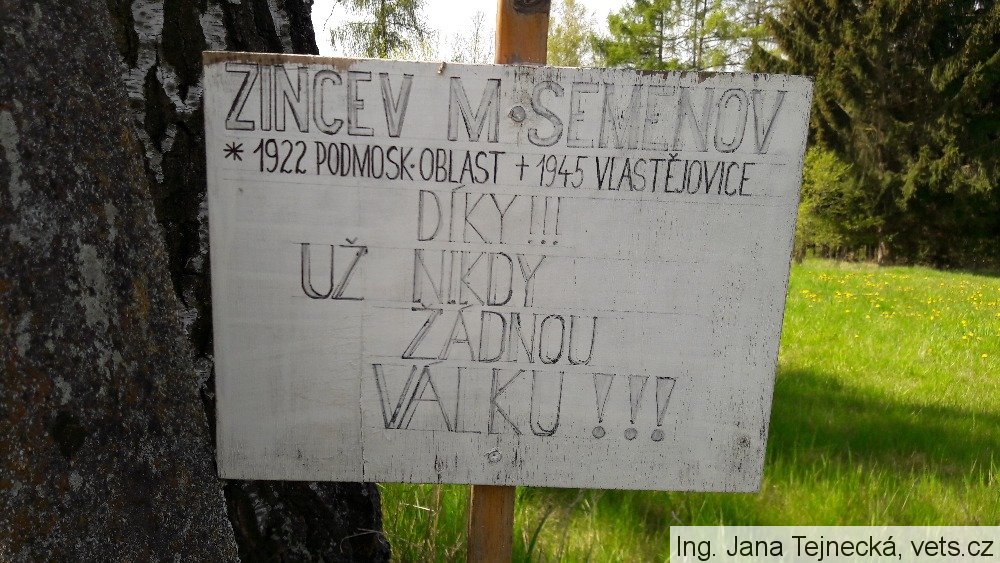 ZINCEV M. SEMENOV
* 1922 PODMOSK. OBLAST + 1945 VLASTĚJOVICE
DÍKY!!!
UŽ NIKDY
ŽÁDNOU
VÁLKU!!!
Ing. Jana Tejnecká, vets.cz